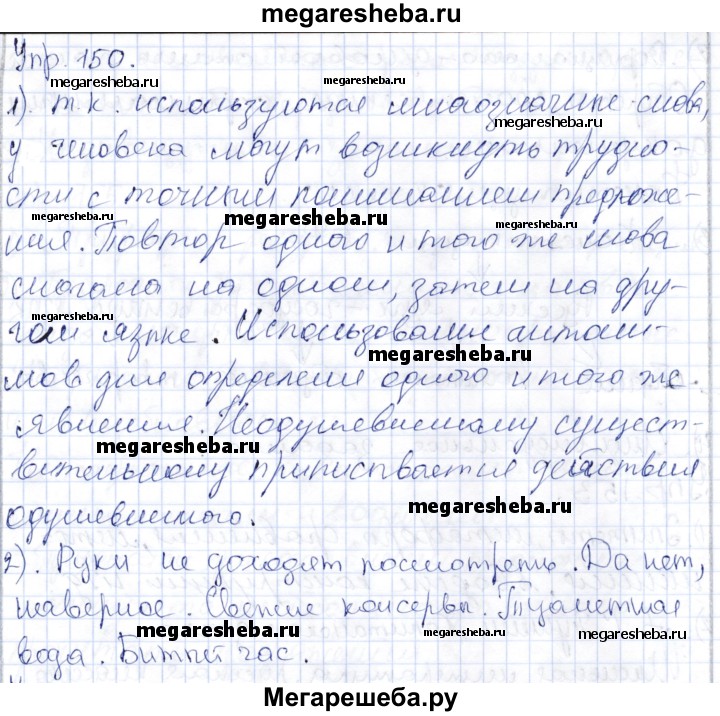 megaresheba.ru
Упр. 150.
megaresheba.ru megaresheba.ru
1). т.к. используются многозначные слова,
megaresheba.ru
у человека могут возникнуть трудно-
сти с точным пониманием предложе-
megaresheba.ru
ния. Повтор одного и того же слова
megaresheba.ru
сначала на одном, затем на дру-
megaresheba.ru
гом языке. Использование антони-
megaresheba.ru
мов для определения одного и того же
явления. Неодушевленному сущест-
megaresheba.ru megaresheba.ru
вительному приписывается действия
одушевленного.
2). Руки не доходят посмотреть. Да нет,
наверное. Свежие консервы. Туалетная
megaresheba.ru megaresheba.ru megaresheba.ru
вода. Битый час.
Мегарешеба.ру